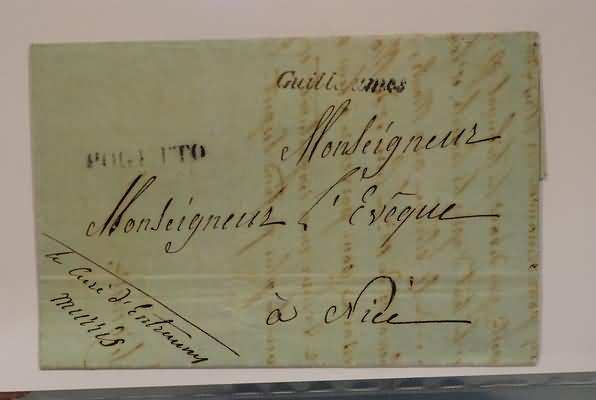 Guillaumes
POGETTO
Monseigneur
Monseigneur L'Evêque
à Nice
le Curé d'Entraunes